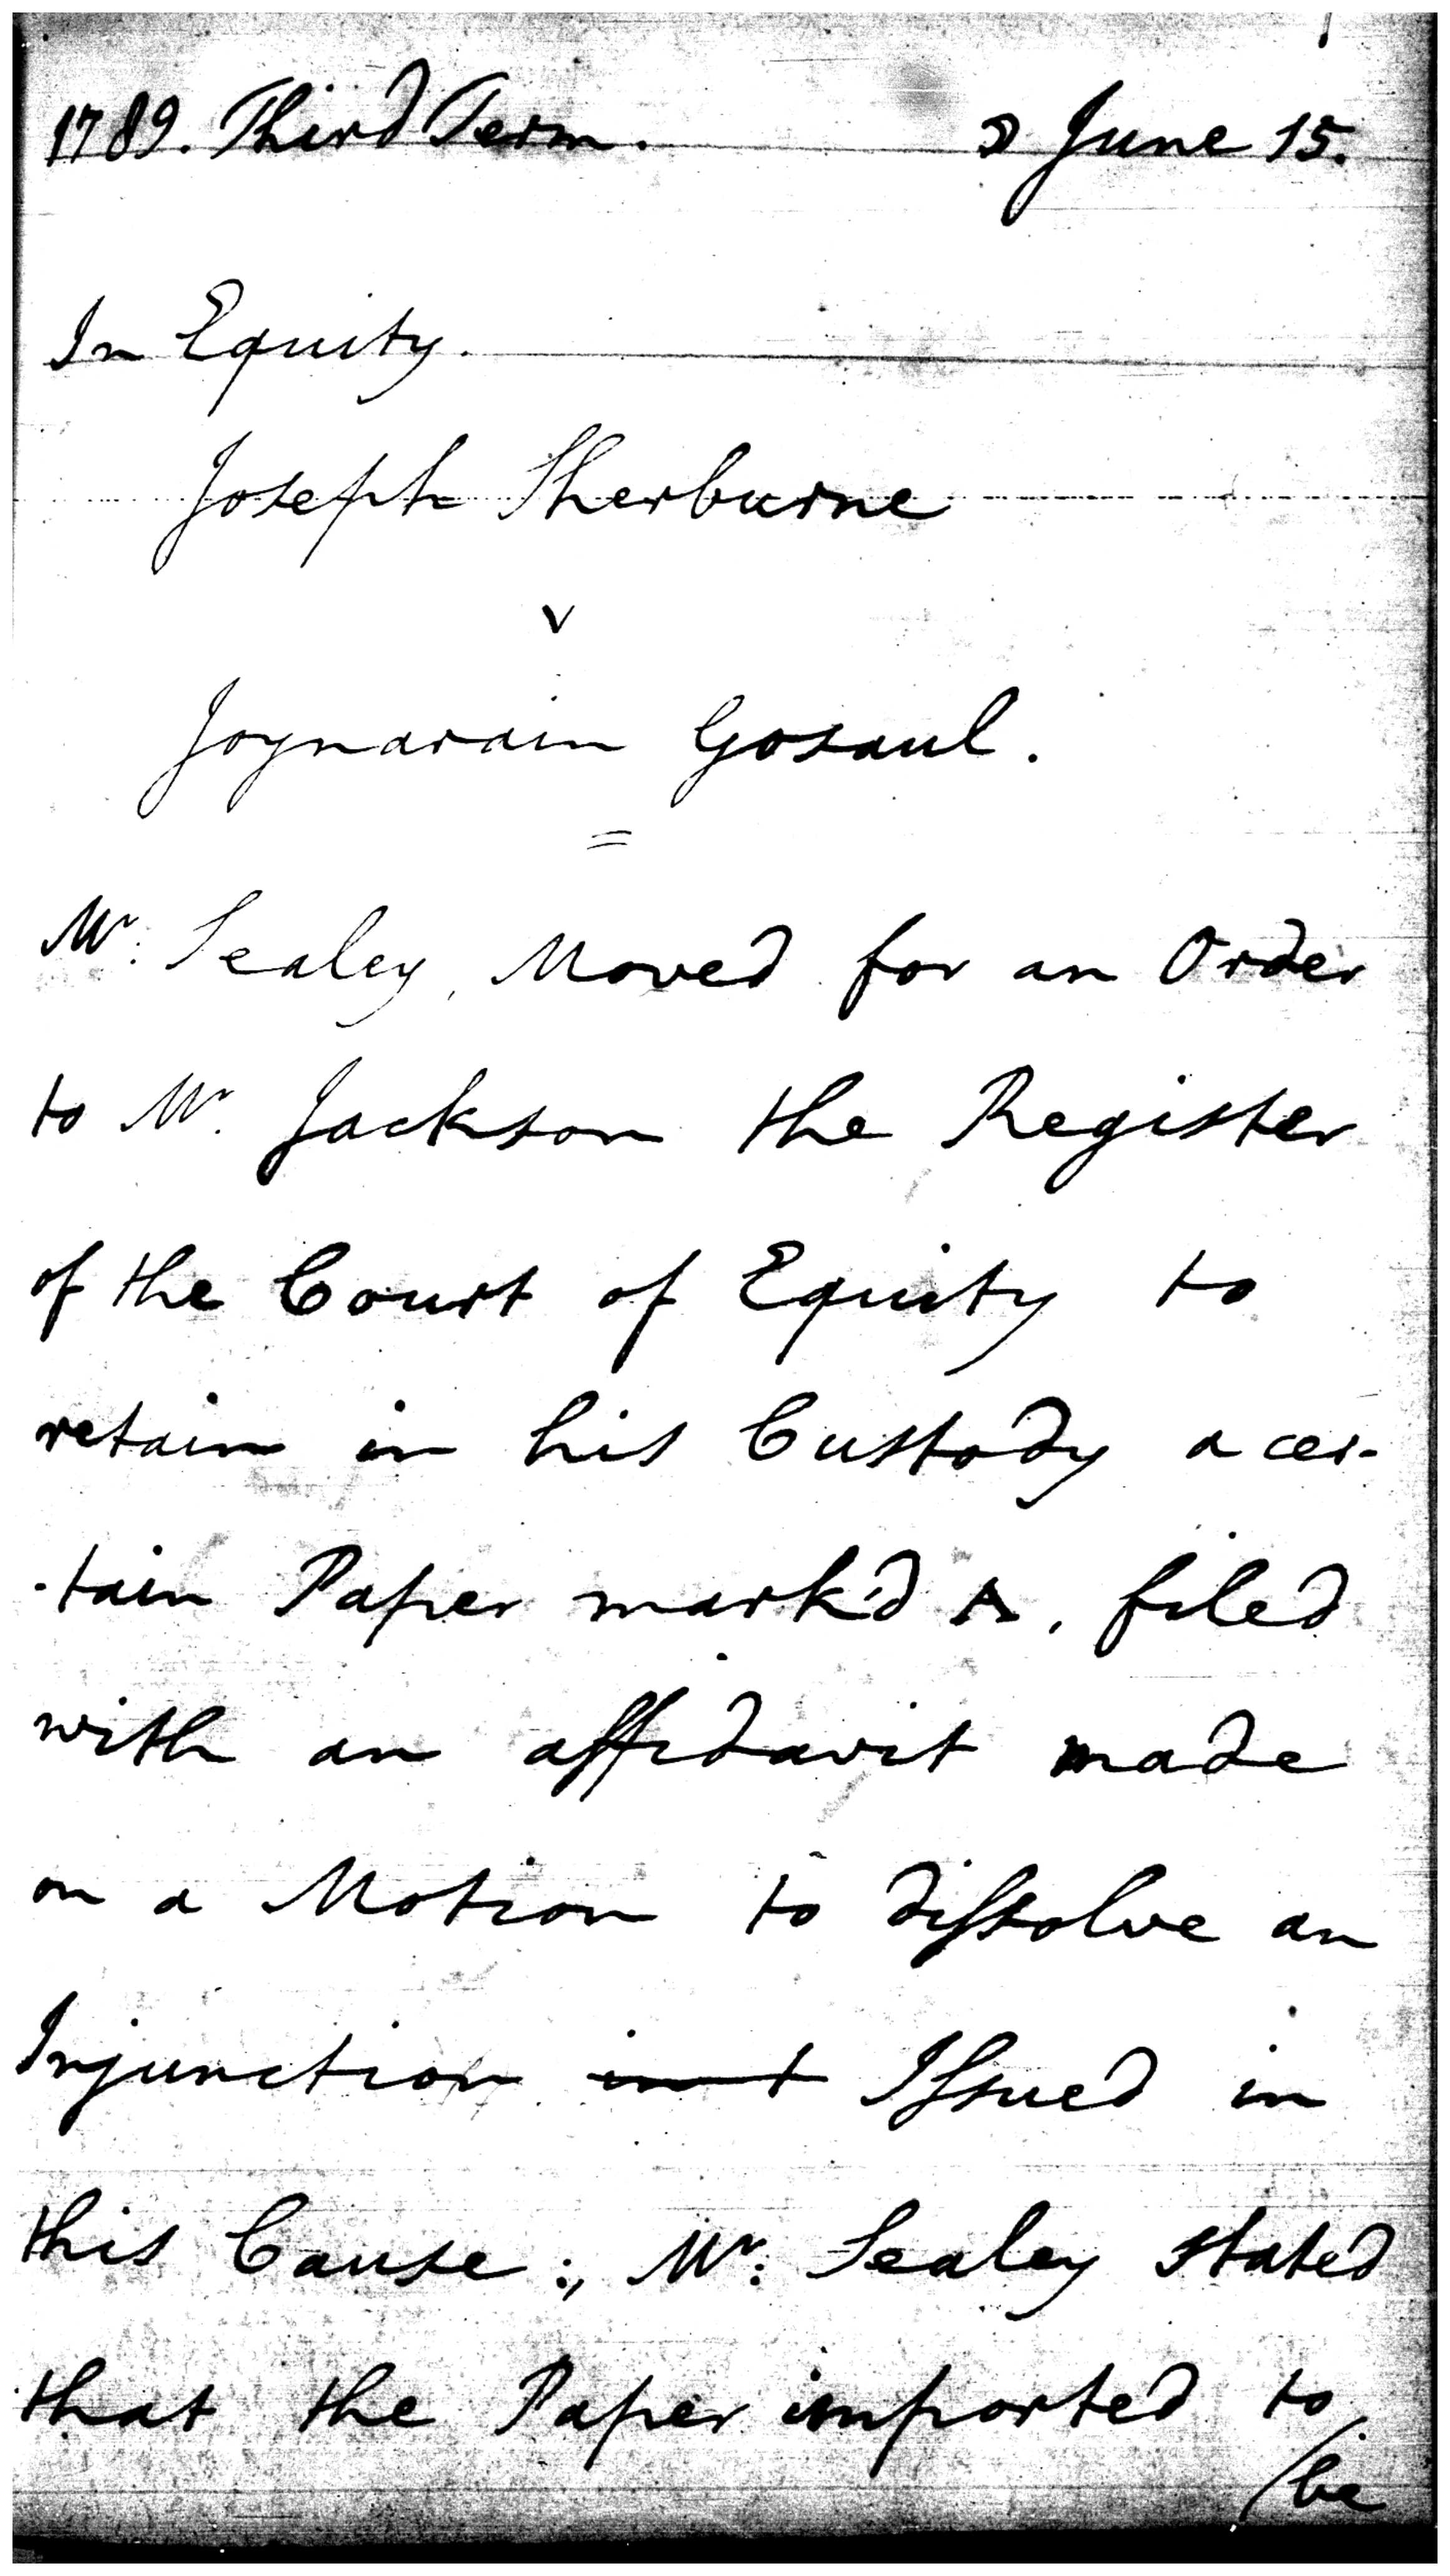 1789. Third Term. ☽ June 15.
In Equity.
Joseph Sherburne
v
Joynarain Gosaul.
Mr. Sealey, Moved for an Order
to Mr. Jackson the Register
of the Court of Equity to
retain in his Custody a cer-
-tain Paper mark'd A, filed
with an affidavit made
on a Motion to dissolve an
Injunction Issued in
this Cause:, Mr: Sealey stated
that the Paper imported to
/be